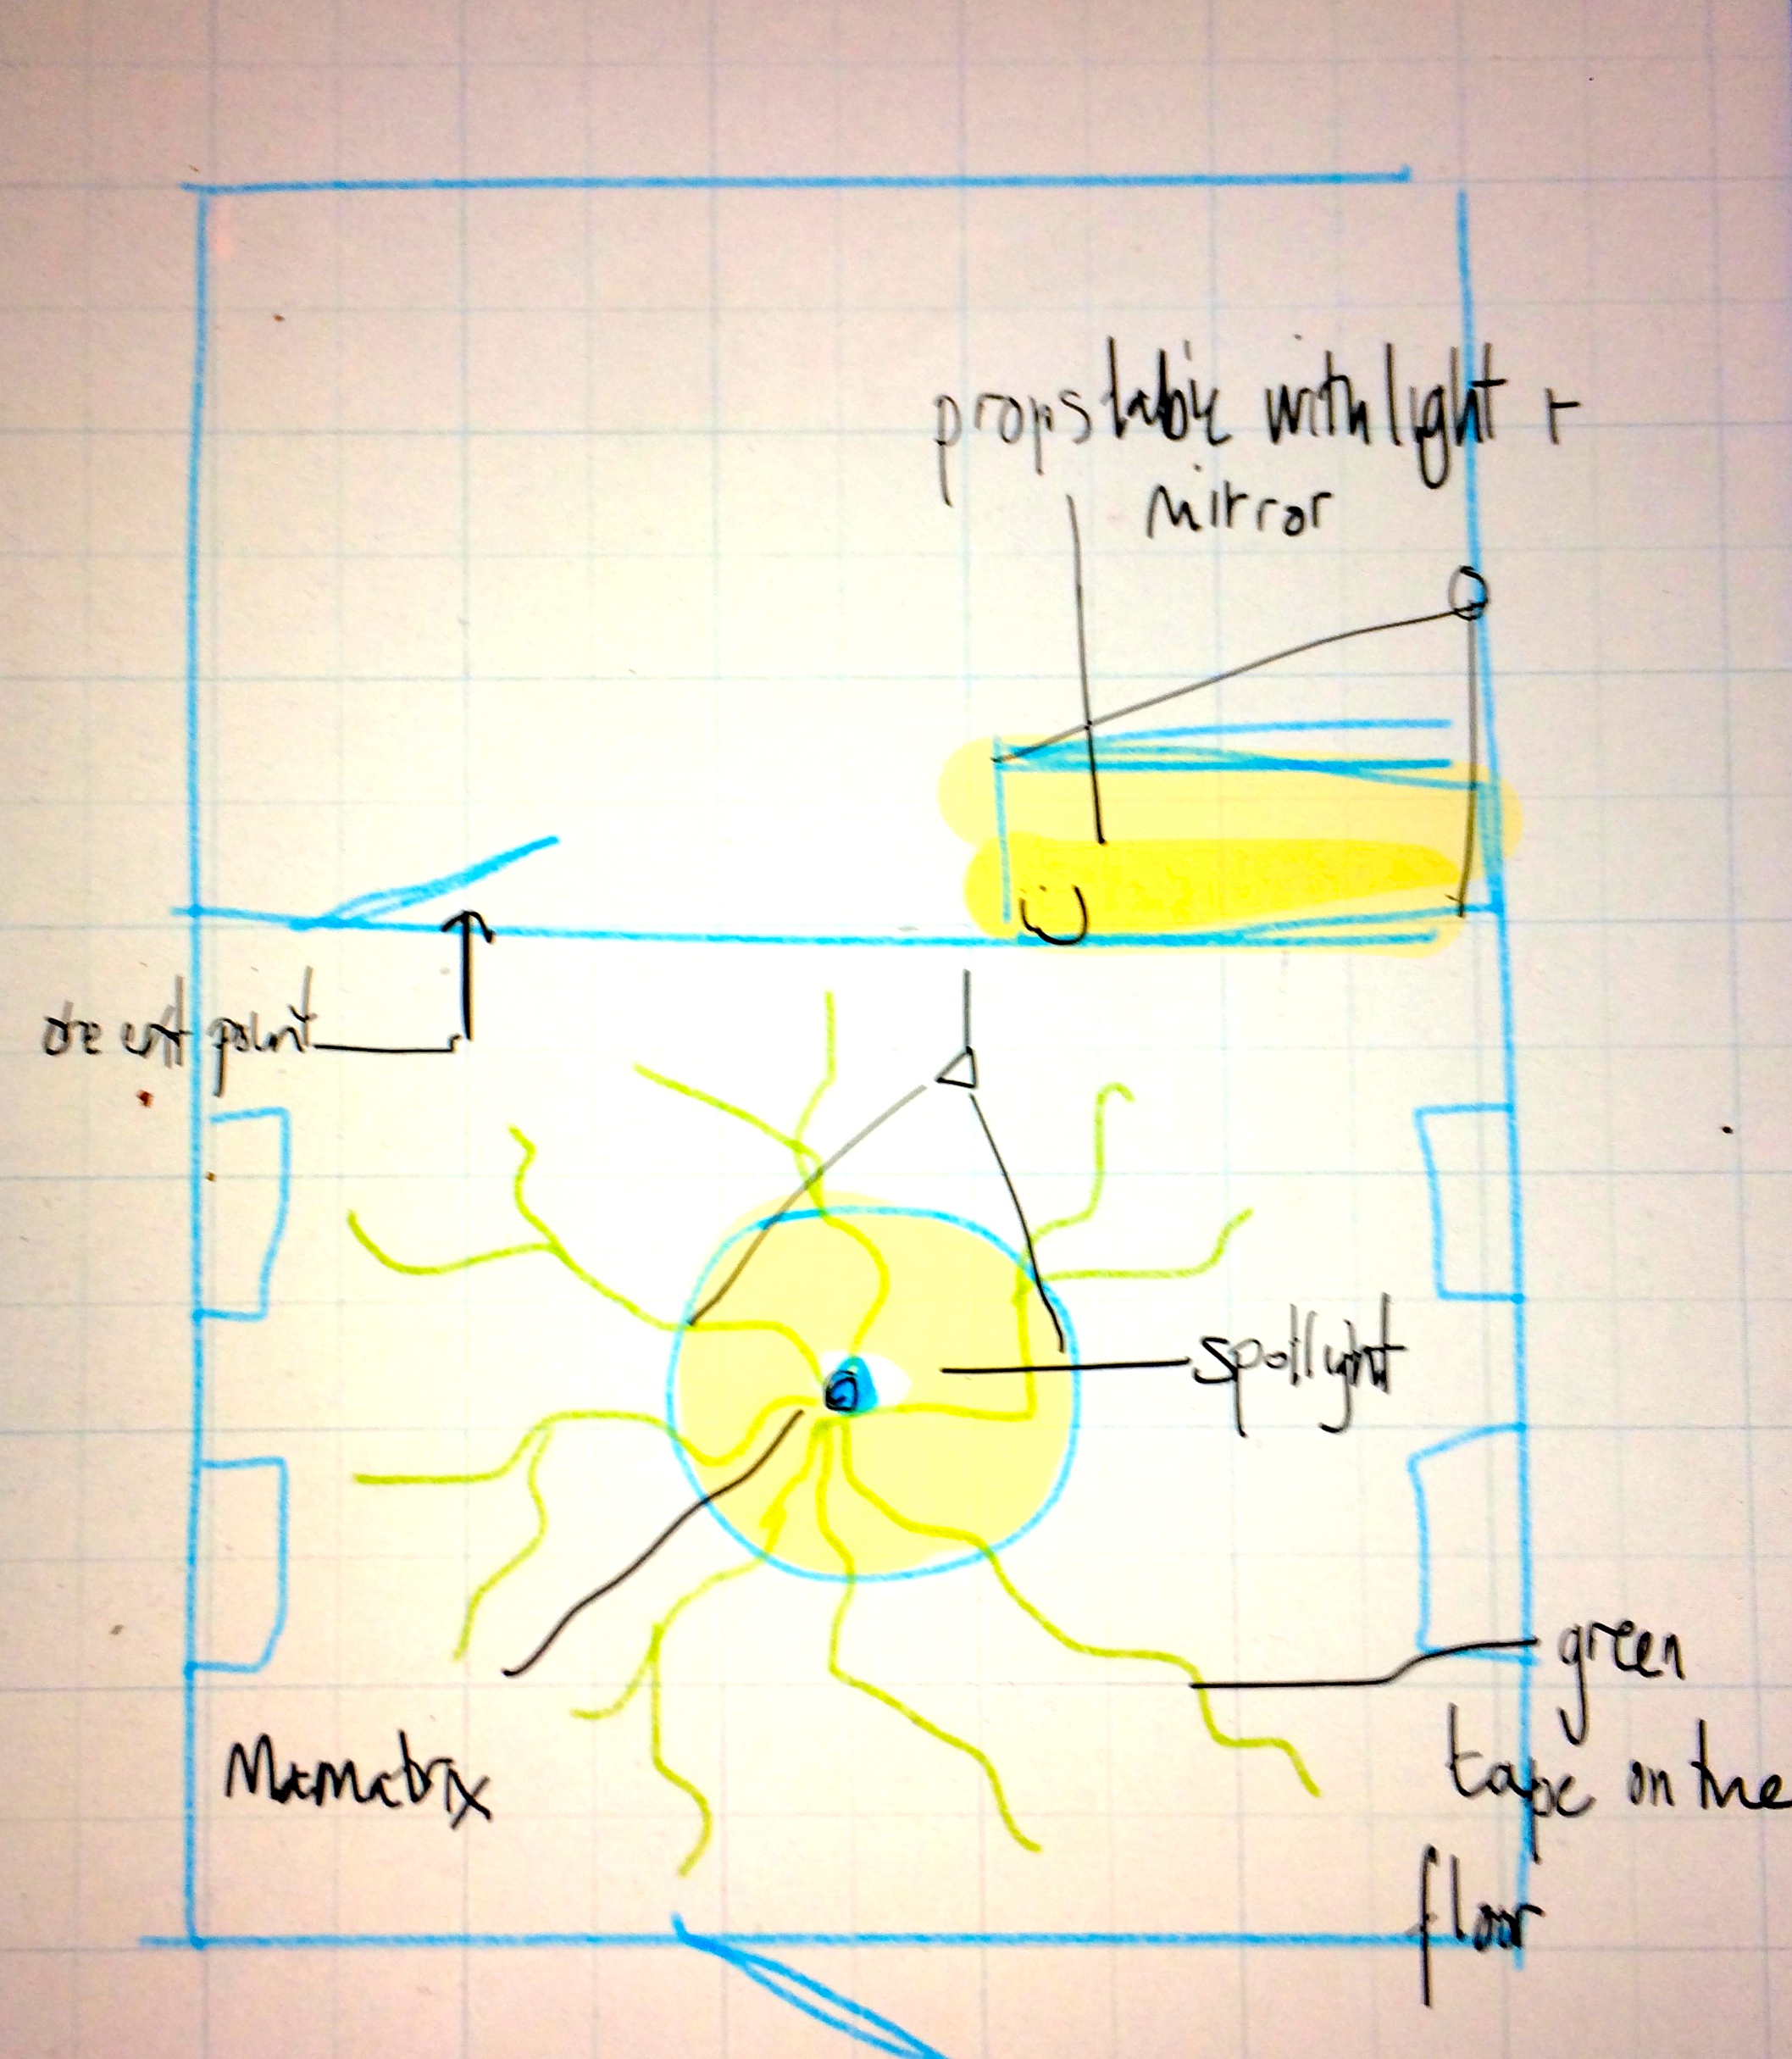 props table with light +
mirror
point
spotlight
green
tape on the
floor
Mamatrix